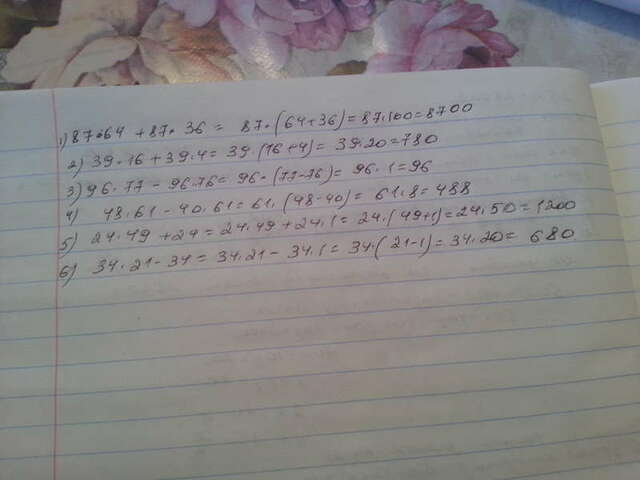 1) 87•64 + 87•36 = 87•(64+36)=87•100=8700
2) 39•16+39•4=39•(16+4)=39•20=780
3) 96•77-96•76=96•(77-76)=96•1=96
4) 48•61-40•61=61•(48-40)=61•8=488
5) 24•49+24=24•49+24•1=24•(49+1)=24•50=1200
6) 34•21-34=34•21-34•1=34•(21-1)=34•20=680